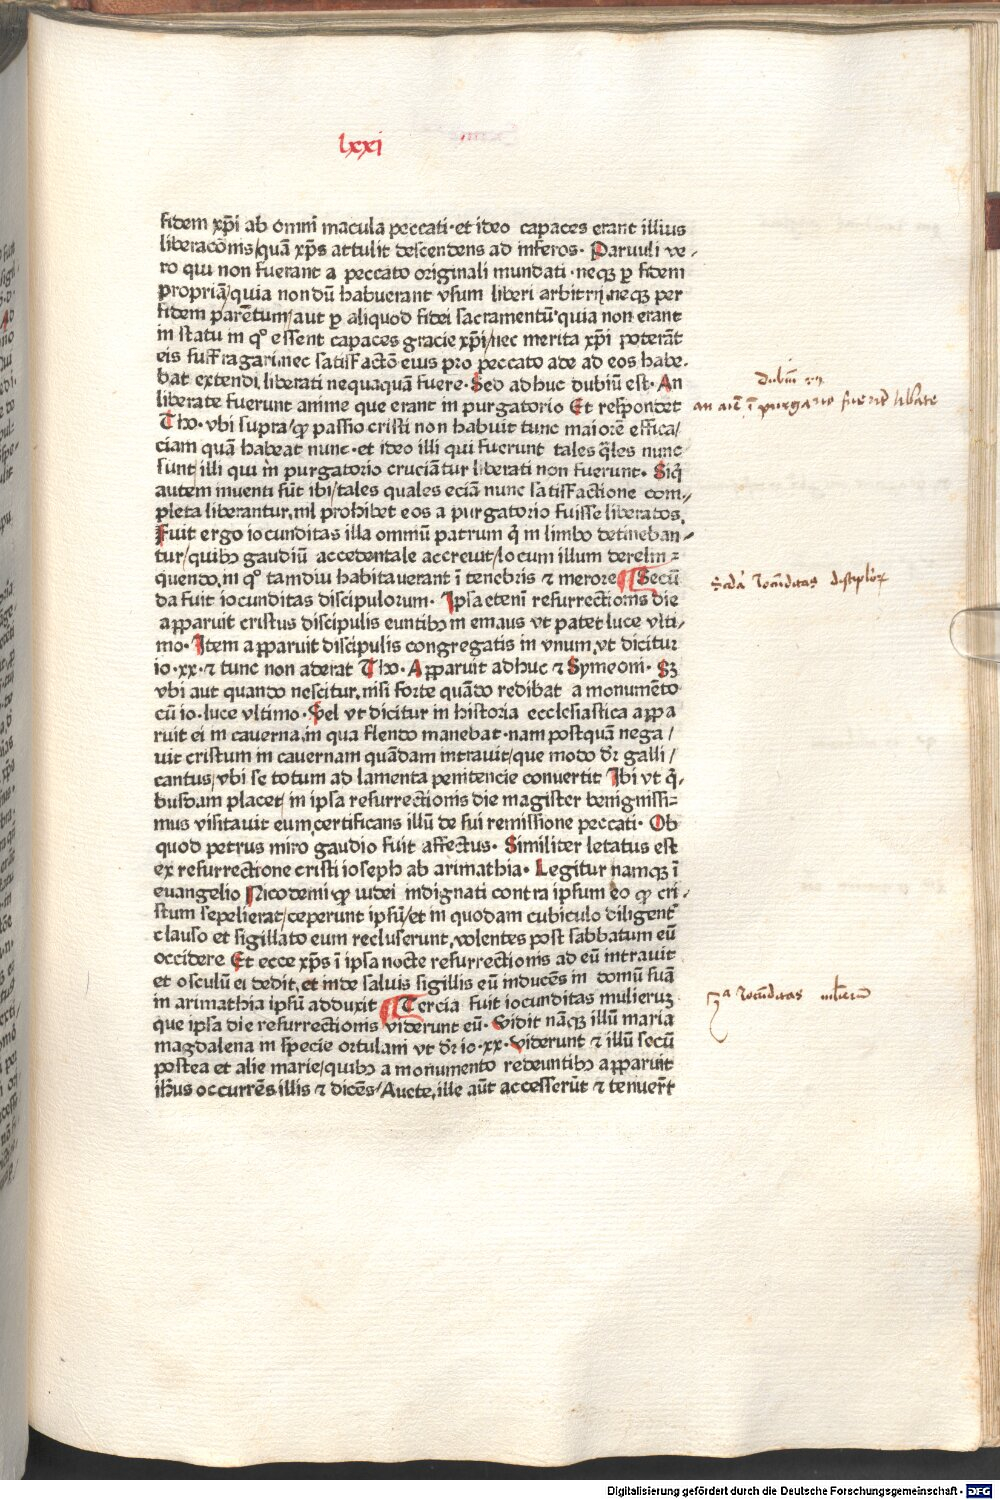 lxxi
fidem xp̄i ab omni macula peccati·et ideo capaces erant illius
liberacōnis/quā xp̄s attulit descendens ad inferos· Paruuli ve⸗
ro qui non fuerant a peccato originali mundati·neqꝫ ꝑ fidem
propriā/quia nondū habuerant vsum liberi arbitrij.neqꝫ per
fidem parentum/aut ꝑ aliquod fidei sacramentū·quia non erant
in statu in qͦ essent capaces gracie xp̄i/nec merita xp̄i poterāt
eis suffragari.nec satisfactō eius pro peccato ade ad eos habe⸗
bat extendi.liberati nequaquā fuere· Sed adhuc dubiū est· An
liberate fuerunt anime que erant in purgatorio Et respondet
Tho·vbi supra/ꝙ passio cristi non habuit tunc maiorē effica/
ciam quā habeat nunc·et ideo illi qui fuerunt tales q̄les nunc
sunt illi qui in purgatorio cruciātur liberati non fuerunt· Siq̄
autem inuenti fūt ibi/tales quales eciā nunc satisfactione com⸗
pleta liberantur.nil prohibet eos a purgatorio fuisse liberatos.
Fuit ergo iocunditas illa omniū patrum q̄ in limbo detineban⸗
tur/quibꝫ gaudiū accedentale accreuit/locum illum derelin⸗
quendo.in qͦ tamdiu habitauerant ī tenebris ⁊ merore ¶Secū
da fuit iocunditas discipulorum· Ipsa etenī resurrectionis die
apparuit cristus discipulis euntibꝫ in emaus vt patet luce vlti⸗
mo· Item apparuit discipulis congregatis in vnum.vt dicitur
io·xx·⁊ tunc non aderat Tho· Apparuit adhuc ⁊ Symeoni· Sꝫ
vbi aut quando nescitur.nisi forte quādo redibat a monumēto
cū io·luce vltimo· Vel vt dicitur in historia ecclesiastica appa
ruit ei in cauerna.in qua flendo manebat·nam postquā nega/
uit cristum in cauernam quādam intrauit/que modo dr̄ galli/
cantus/vbi se totum ad lamenta penitencie conuertit Ibi vt q̄⸗
busdam placet/in ipsa resurrectionis die magister benignissi⸗
mus visitauit eum.certificans illū de sui remissione peccati· Ob
quod petrus miro gaudio fuit affectus· Similiter letatus est
ex resurrectione cristi ioseph ab arimathia· Legitur namqꝫ ī
euangelio Nicodemi·ꝙ iudei indignati contra ipsum eo ꝙ cri⸗
stum sepelierat/ceperunt ipsū/et in quodam cubiculo diligent̄
clauso et sigillato eum recluserunt.volentes post sabbatum eū
occidere Et ecce xp̄s ī ipsa nocte resurrectionis ad eū intrauit
et osculū ei dedit.et inde saluis sigillis eū inducēs in domū suā
in arimathia ipsū adduxit ¶Tercia fuit iocunditas mulieruꝫ
que ipsa die resurrectionis viderunt eū· Vidit nāqꝫ illū maria
magdalena in specie ortulani vt dr̄ io·xx· Viderunt ⁊ illū secū
postea et alie marie/quibꝫ a monumento redeuntibꝫ apparuit
ih̄us occurrēs illis ⁊ dicēs/Auete.ille aūt accesserūt ⁊ tenuer̄t
Dubiū
an aīe ī purgatorio fuerīt liberate
Scd̄a Iocūditas discipulor̄
3ª Iocūditas mulierū
Digitalisierung gefördert durch die Deutsche Forschungsgemeinschaft · DFG